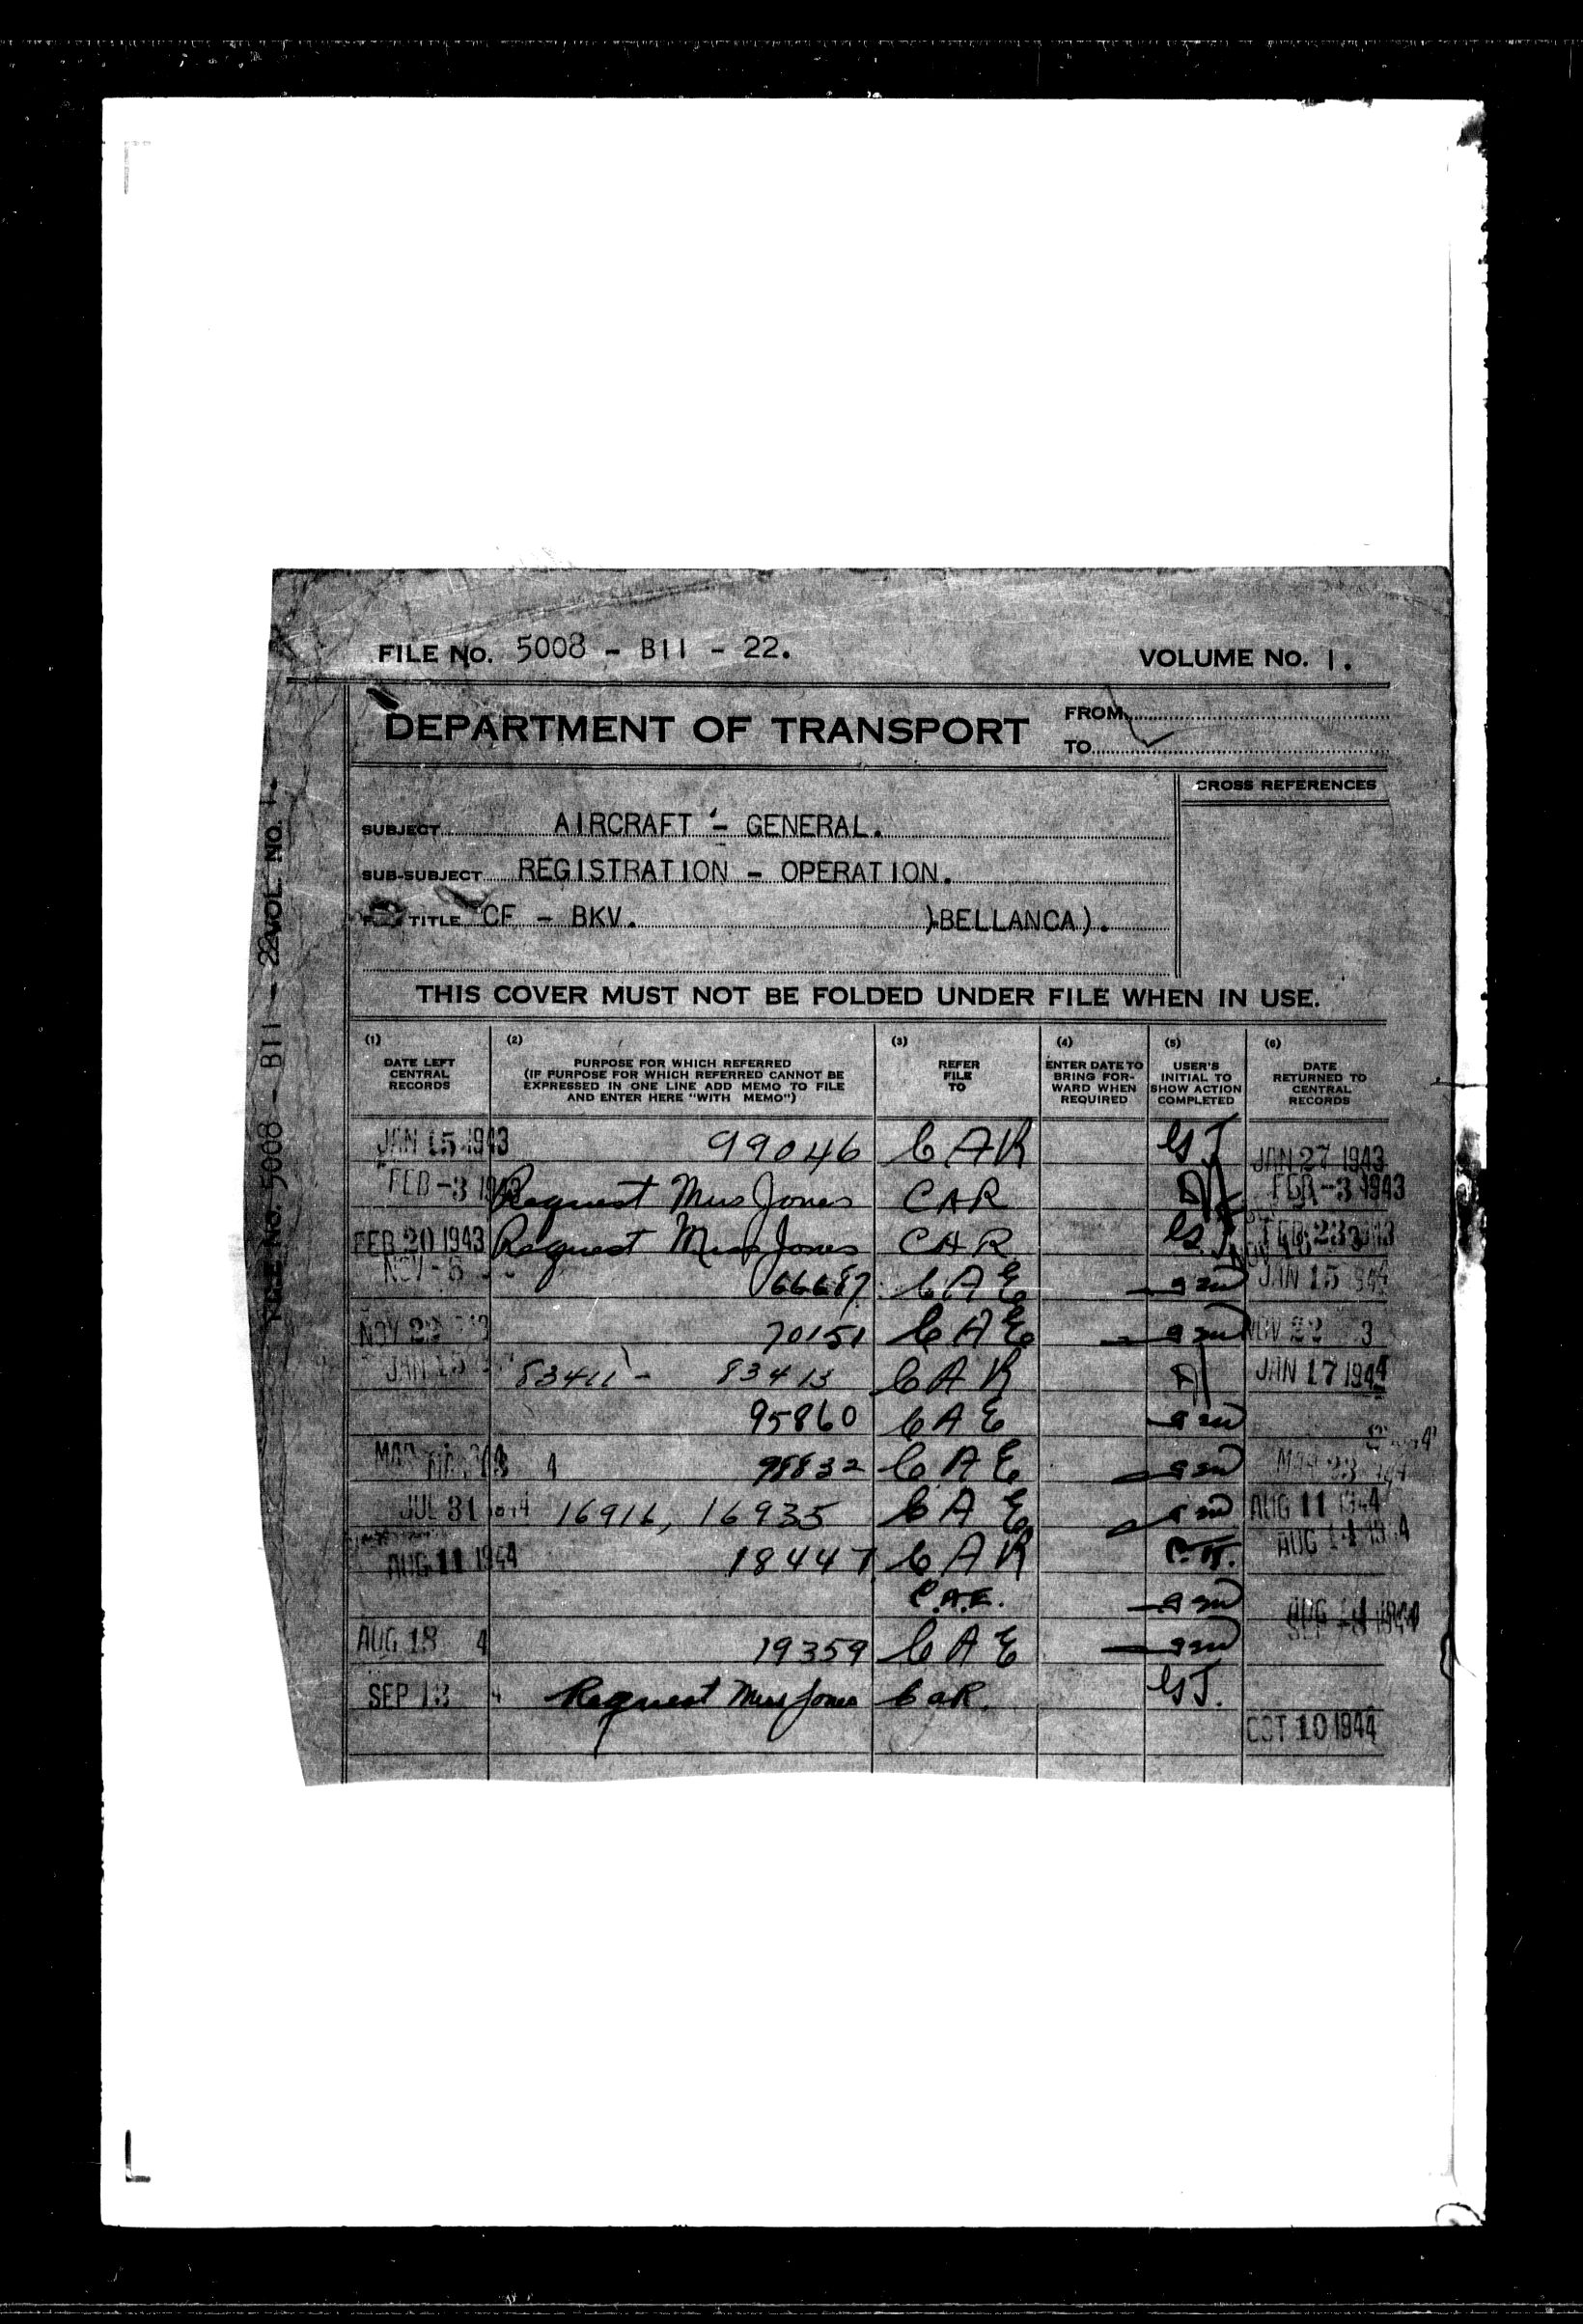 FILE No. 5008 - B11 - 22. VOLUME No. 1.
DEPARTMENT OF TRANSPORT FROM
TO
CROSS REFERENCES
SUBJECT AIRCRAFT - GENERAL.
SUB-SUBJECT REGISTRATION - OPERATION.
TITLE CF - BKV. )BELLANCA).
THIS COVER MUST NOT BE FOLDED UNDER FILE WHEN IN USE.
(1) (2) (3) (4) (5) (6)
DATE LEFT CENTRAL RECORDS
PURPOSE FOR WHICH REFERRED
(IF PURPOSE FOR WHICH REFERRED CANNOT BE
EXPRESSED IN ONE LINE ADD MEMO TO FILE
AND ENTER HERE "WITH MEMO")
REFER FILE TO
ENTER DATE TO BRING FOR-WARD WHEN REQUIRED
USER'S INITIAL TO SHOW ACTION COMPLETED
DATE RETURNED TO CENTRAL RECORDS
JAN 15 1943 99046 CAR GJ JAN 27 1943
FEB -3 1943 Request Miss Jones CAR FEB -3 1943
FEB 20 1943 Request Miss Jones CAR GJ FEB 23 1943
NOV -8 66687 CAE JAN 15 944
NOV 22 70151 CAE NOV 22 3
JAN 15 83411 - 83413 CAR JAN 17 1944
95860 CAE
MAR 4 98832 CAE MAR 23
JUL 31 16916, 16935 CAE AUG 11 1944
AUG 11 1944 18447 CAR AUG 14 1944
C.A.E. AUG 1944
AUG 18 4 19359 CAE
SEP 13 4 Request Miss Jones CAR GJ.
OCT 10 1944
FILE No. 5008 - B11 - 22 VOL. NO. 1.